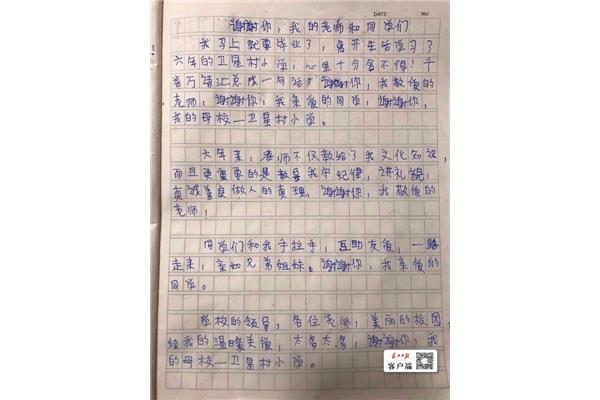 DATE No.
谢谢你，我的老师和同学们
我马上就要毕业了，离开生活学习了
六年的卫星村小学，心里十分舍不得！千
言万语汇总成一句话"谢谢你，我敬爱的
老师，谢谢你，我亲爱的同学，谢谢你，
我的母校—卫星村小学。
六年来，老师不仅教给了我文化知识，
而且更重要的是教导我守纪律，讲礼貌，
真诚善良做人的真理，谢谢你，我敬爱的
老师，
同学们和我手拉手，互助友爱，一路
走来，亲如兄弟姐妹。谢谢你，我亲爱的
同学。
学校的领导，各位老师，美丽的校园，
给我的温暖关爱，太多太多，谢谢你，我
的母校—卫星村小学。
客户端